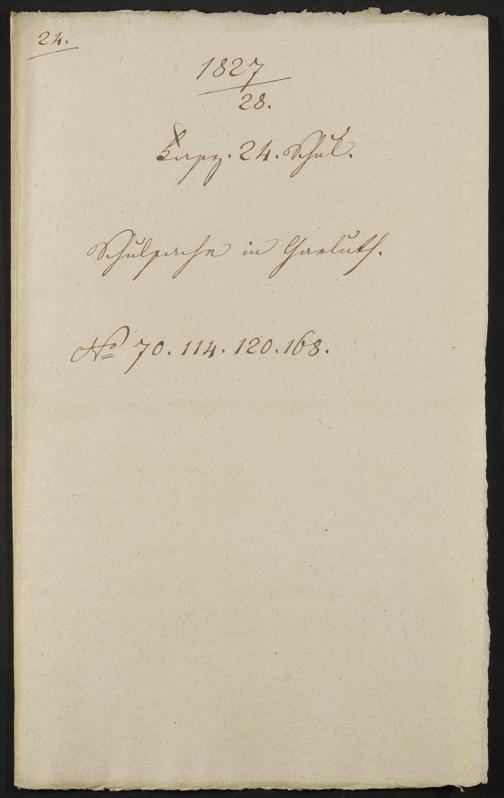 24.
1827
28.
Kapz. 24. Schul.
Schulsache in
No 70. 114. 120. 168.